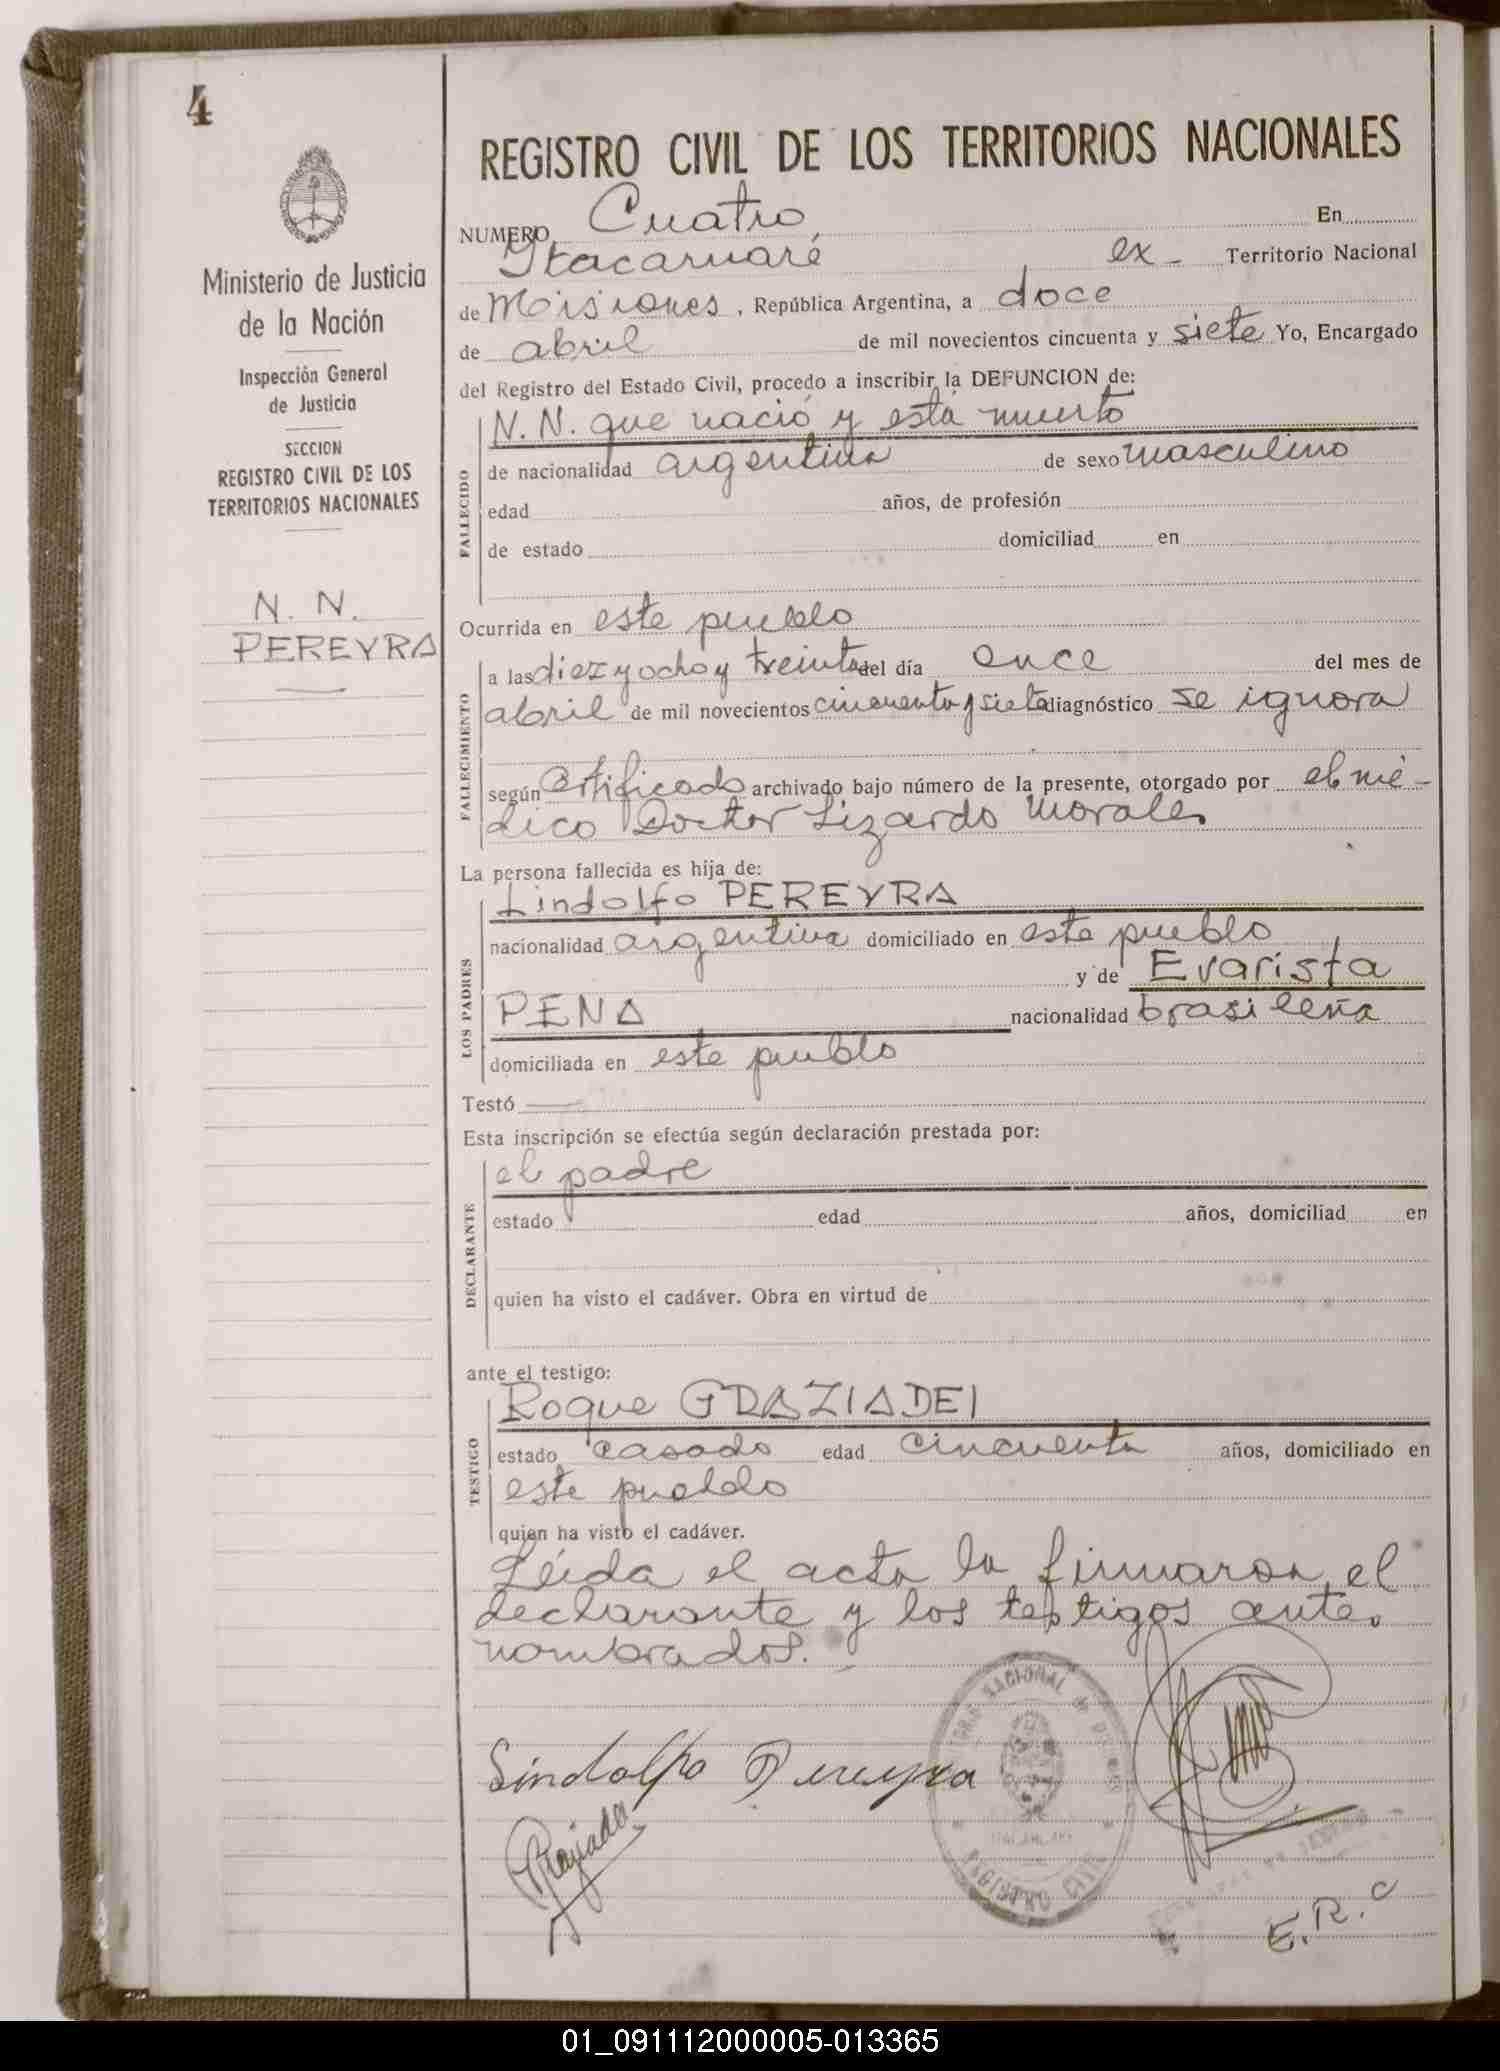 4
Ministerio de Justicia
de la Nación
Inspección General
de Justicia
SECCION
REGISTRO CIVIL DE LOS
TERRITORIOS NACIONALES
N. N.
PEREYRA
REGISTRO CIVIL DE LOS TERRITORIOS NACIONALES
NUMERO Cuatro En
Itacaruaré ex- Territorio Nacional
de Misiones, República Argentina, a doce
de abril de mil novecientos cincuenta y siete Yo, Encargado
del Registro del Estado Civil, procedo a inscribir la DEFUNCION de:
FALLECIDO
N. N. que nació y está muerto
de nacionalidad argentina de sexo masculino
edad años, de profesión
de estado domiciliad en
Ocurrida en este pueblo
FALLECIMIENTO
a las diez y ocho y treinta del día once del mes de
abril de mil novecientos cincuenta y siete diagnóstico se ignora
según certificado archivado bajo número de la presente, otorgado por el mé-
dico Doctor Lizardo Morales
La persona fallecida es hija de:
LOS PADRES
Lindolfo PEREYRA
nacionalidad argentina domiciliado en este pueblo
y de Evarista
PENA nacionalidad brasileña
domiciliada en este pueblo
Testó —
Esta inscripción se efectúa según declaración prestada por:
DECLARANTE
el padre
estado edad años, domiciliad en
quien ha visto el cadáver. Obra en virtud de
ante el testigo:
TESTIGO
Roque GRAZIADEI
estado casado edad cincuenta años, domiciliado en
este pueblo
quien ha visto el cadáver.
Leída el acta la firmaron el
declarante y los testigos ante.
nombrados.
Sindolfo Pereyra
NACIONAL de
REGISTRO CIVIL
E. R. C
01_091112000005-013365